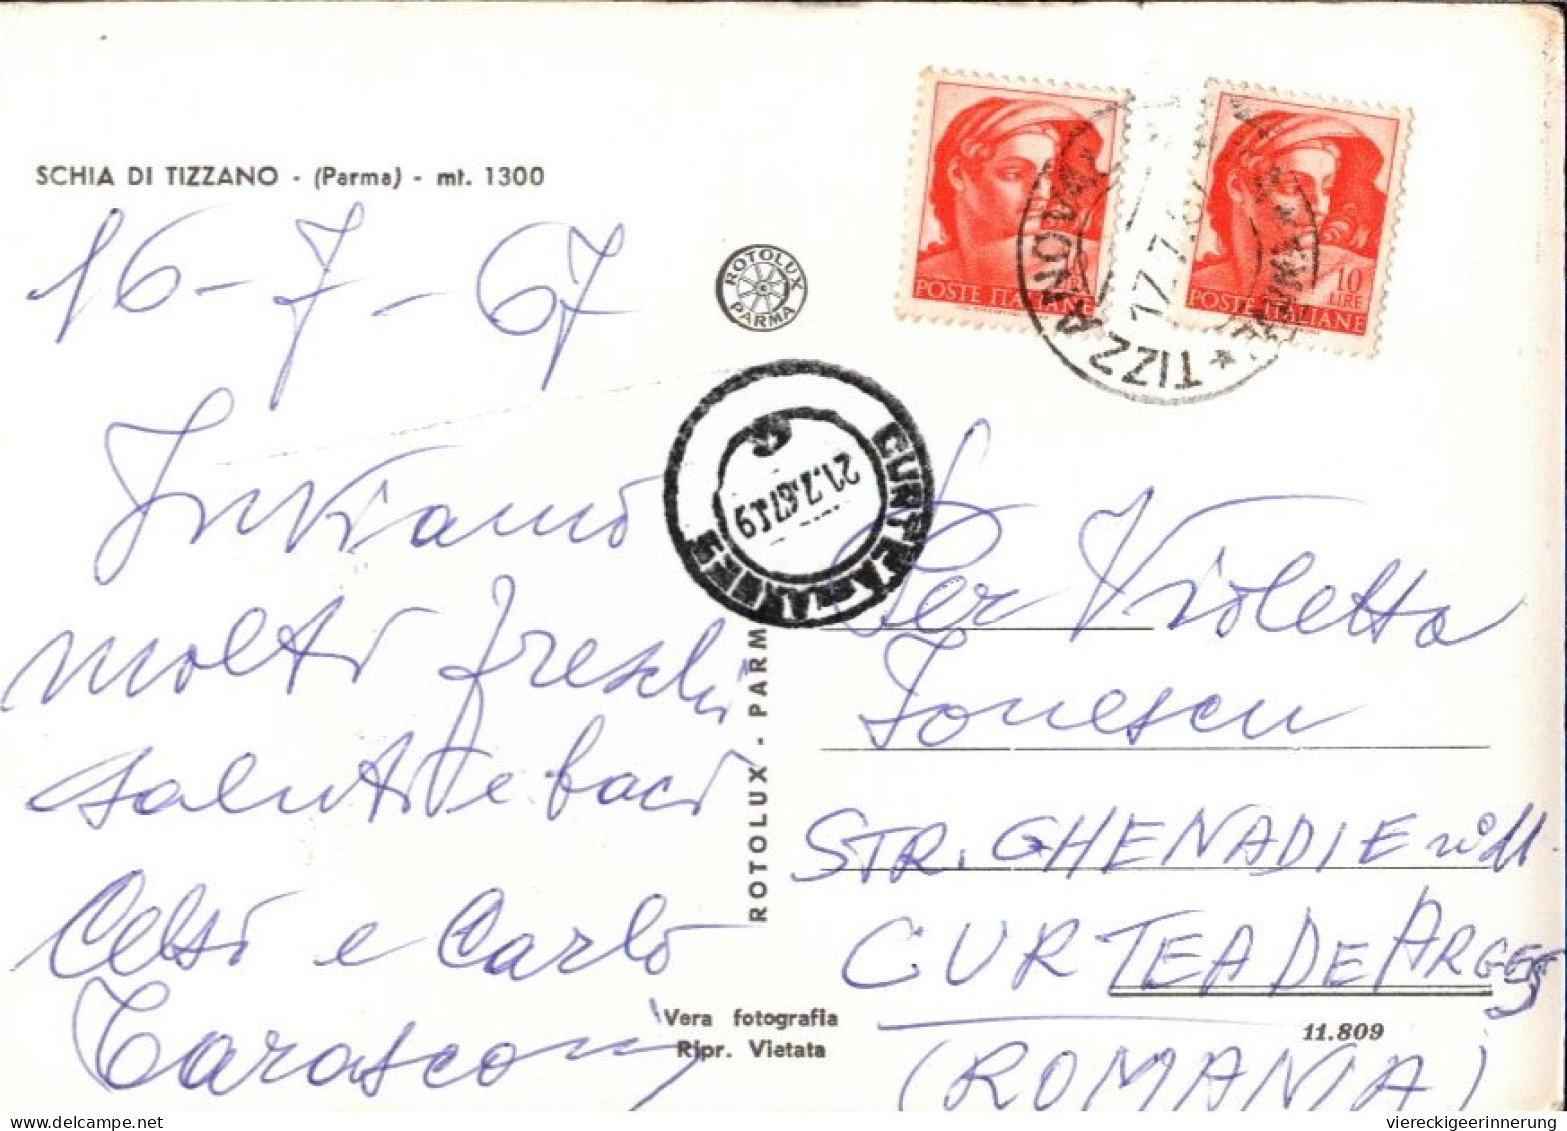 SCHIA DI TIZZANO - (Parma) - mt. 1300
16-7-67
Inviamo
molti freschi
saluti e baci
Celsi e Carlo
Tarasconi
ROTOLUX PARMA
POSTE ITALIANE
10 LIRE
POSTE ITALIANE
TIZZANO VAL
17.7.67
21.7.67.19
ROTOLUX - PARM
Vera fotografia
Ripr. Vietata
Per Violetta
Ionescu
STR. GHENADIE
CURTEA DE ARGES
11.809
(ROMANIA)
delcampe.net
viereckigeerinnerung